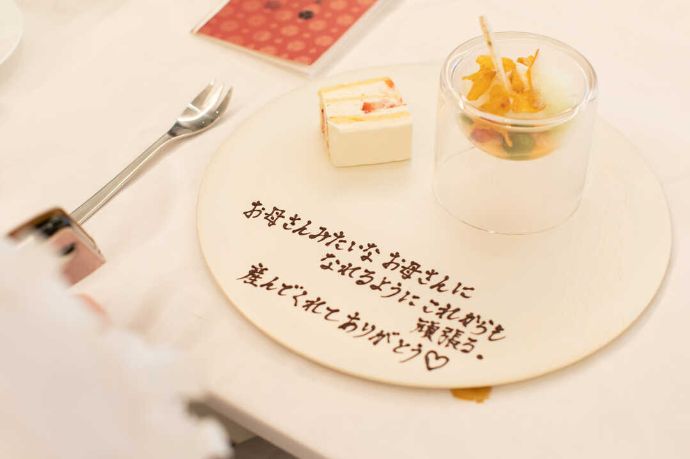 お母さんみたいなお母さんに
なれるようにこれからも
頑張る。
産んでくれてありがとう♡